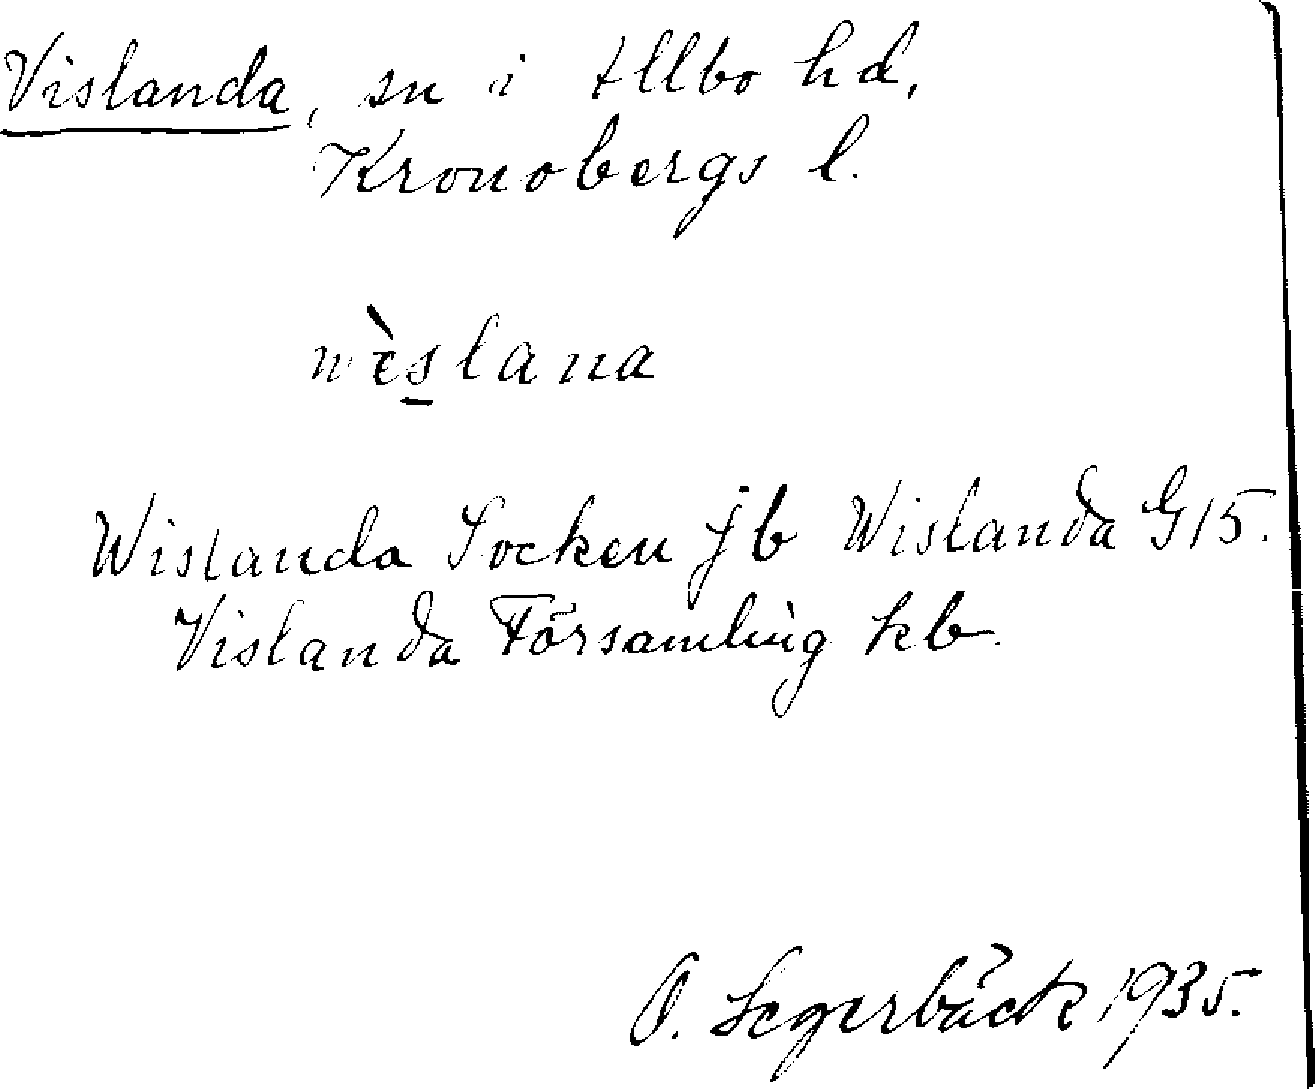 Vislanda, sn i Allbo hd,
Kronobergs l.
wèslana
Wislanda Socken jb Wislanda G15.
Vislanda Församling kb.
O. Segerbäck 1935.